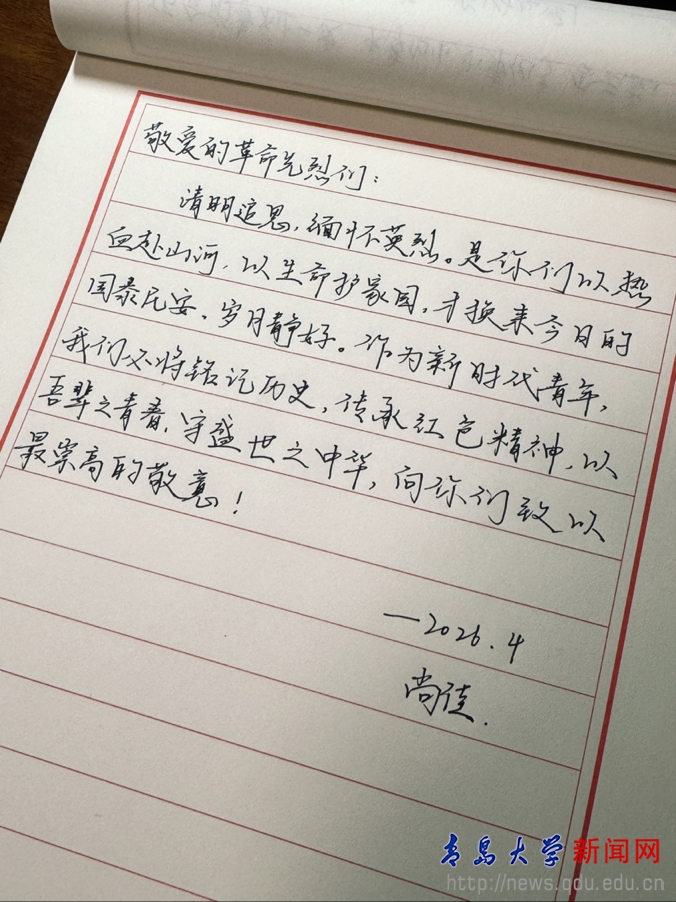 敬爱的革命先烈们：
清明追思，缅怀英烈。是你们以热
血赴山河，以生命护家国，才换来今日的
国泰民安、岁月静好。作为新时代青年，
我们必将铭记历史，传承红色精神，以
吾辈之青春，守盛世之中华，向你们致以
最崇高的敬意！
—2026.4
尚佳.
青岛大学新闻网
http://news.qdu.edu.cn